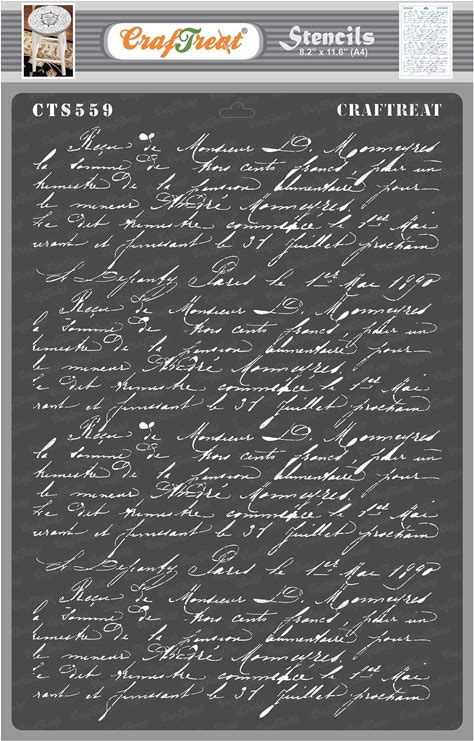 CrafTreat
Stencils
8.2" x 11.6" (A4)
CTS559
CRAFTREAT
Reçu de Monsieur D. Monmeyres
la somme de trois cents francs, pour un
trimestre de la pension alimentaire pour
le mineur André Monmeyres,
Le dit trimestre commence le 1er Mai
urant et finissant le 31 juillet prochain
Paris le 1er Mai 1890
Reçu de Monsieur D. Monmeyres
a somme de trois cents francs, pour un
trimestre de la pension alimentaire pour
le mineur André Monmeyres,
Le dit trimestre commence le 1er Mai
rant et finissant le 31 juillet prochain
Reçu de Monsieur D. Monmeyres
la somme de trois cents francs, pour un
trimestre de la pension alimentaire pour
le mineur André Monmeyres,
Le dit trimestre commence le 1er Mai
urant et finissant le 31 juillet prochain
Paris le 1er Mai 1890
Reçu de Monsieur D. Monmeyres
a somme de trois cents francs, pour un
trimestre de la pension alimentaire pour
le mineur André Monmeyres,
Le dit trimestre commence le 1er Mai
rant et finissant le 31 juillet prochain